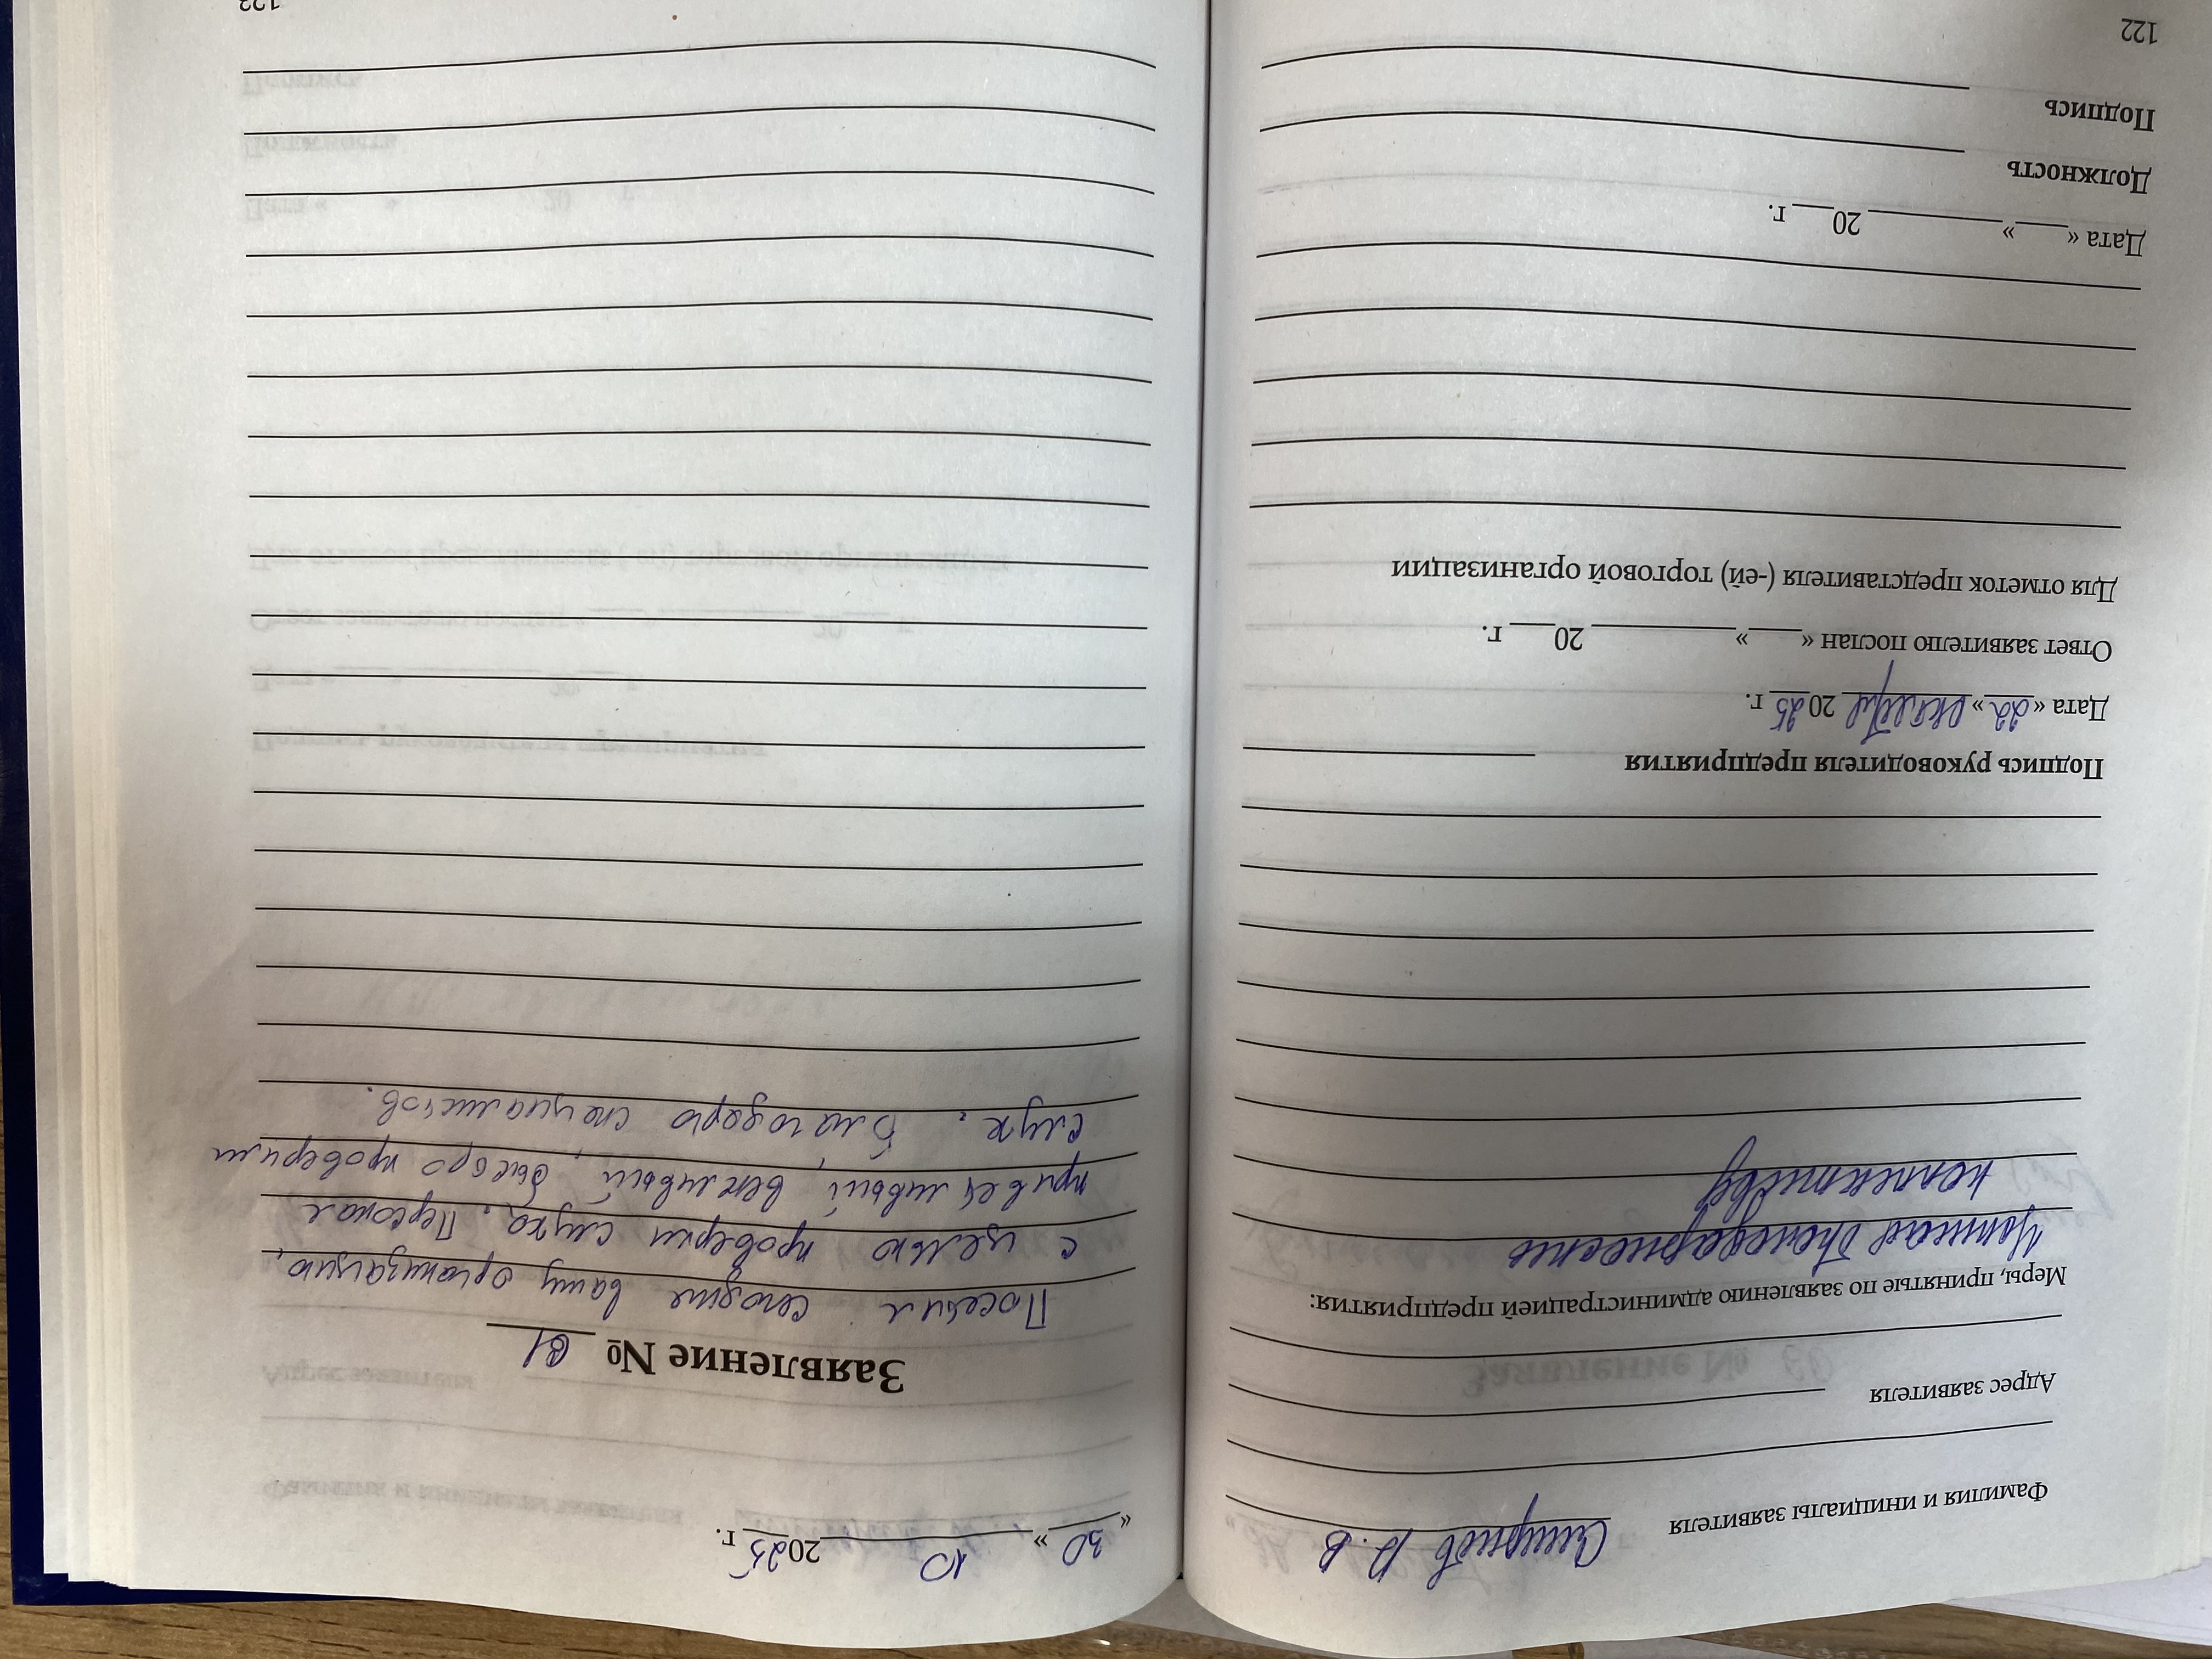 Фамилия и инициалы заявителя Смирнов В.В
Адрес заявителя
Меры, принятые по заявлению администрацией предприятия:
благодарность
коллективу
Подпись руководителя предприятия
Дата «22» октября 2025 г.
Ответ заявителю послан «___» ________ 20__ г.
Для отметок представителя (-ей) торговой организации
Дата «___» ________ 20__ г.
Должность
Подпись
122
«30» 10 2025 г.
Заявление № 61
Посетил сегодня вашу организацию,
с целью проверки слуха. Персонал
приветливый, вежливый, быстро проверили
слух. Благодарю специалистов.
123